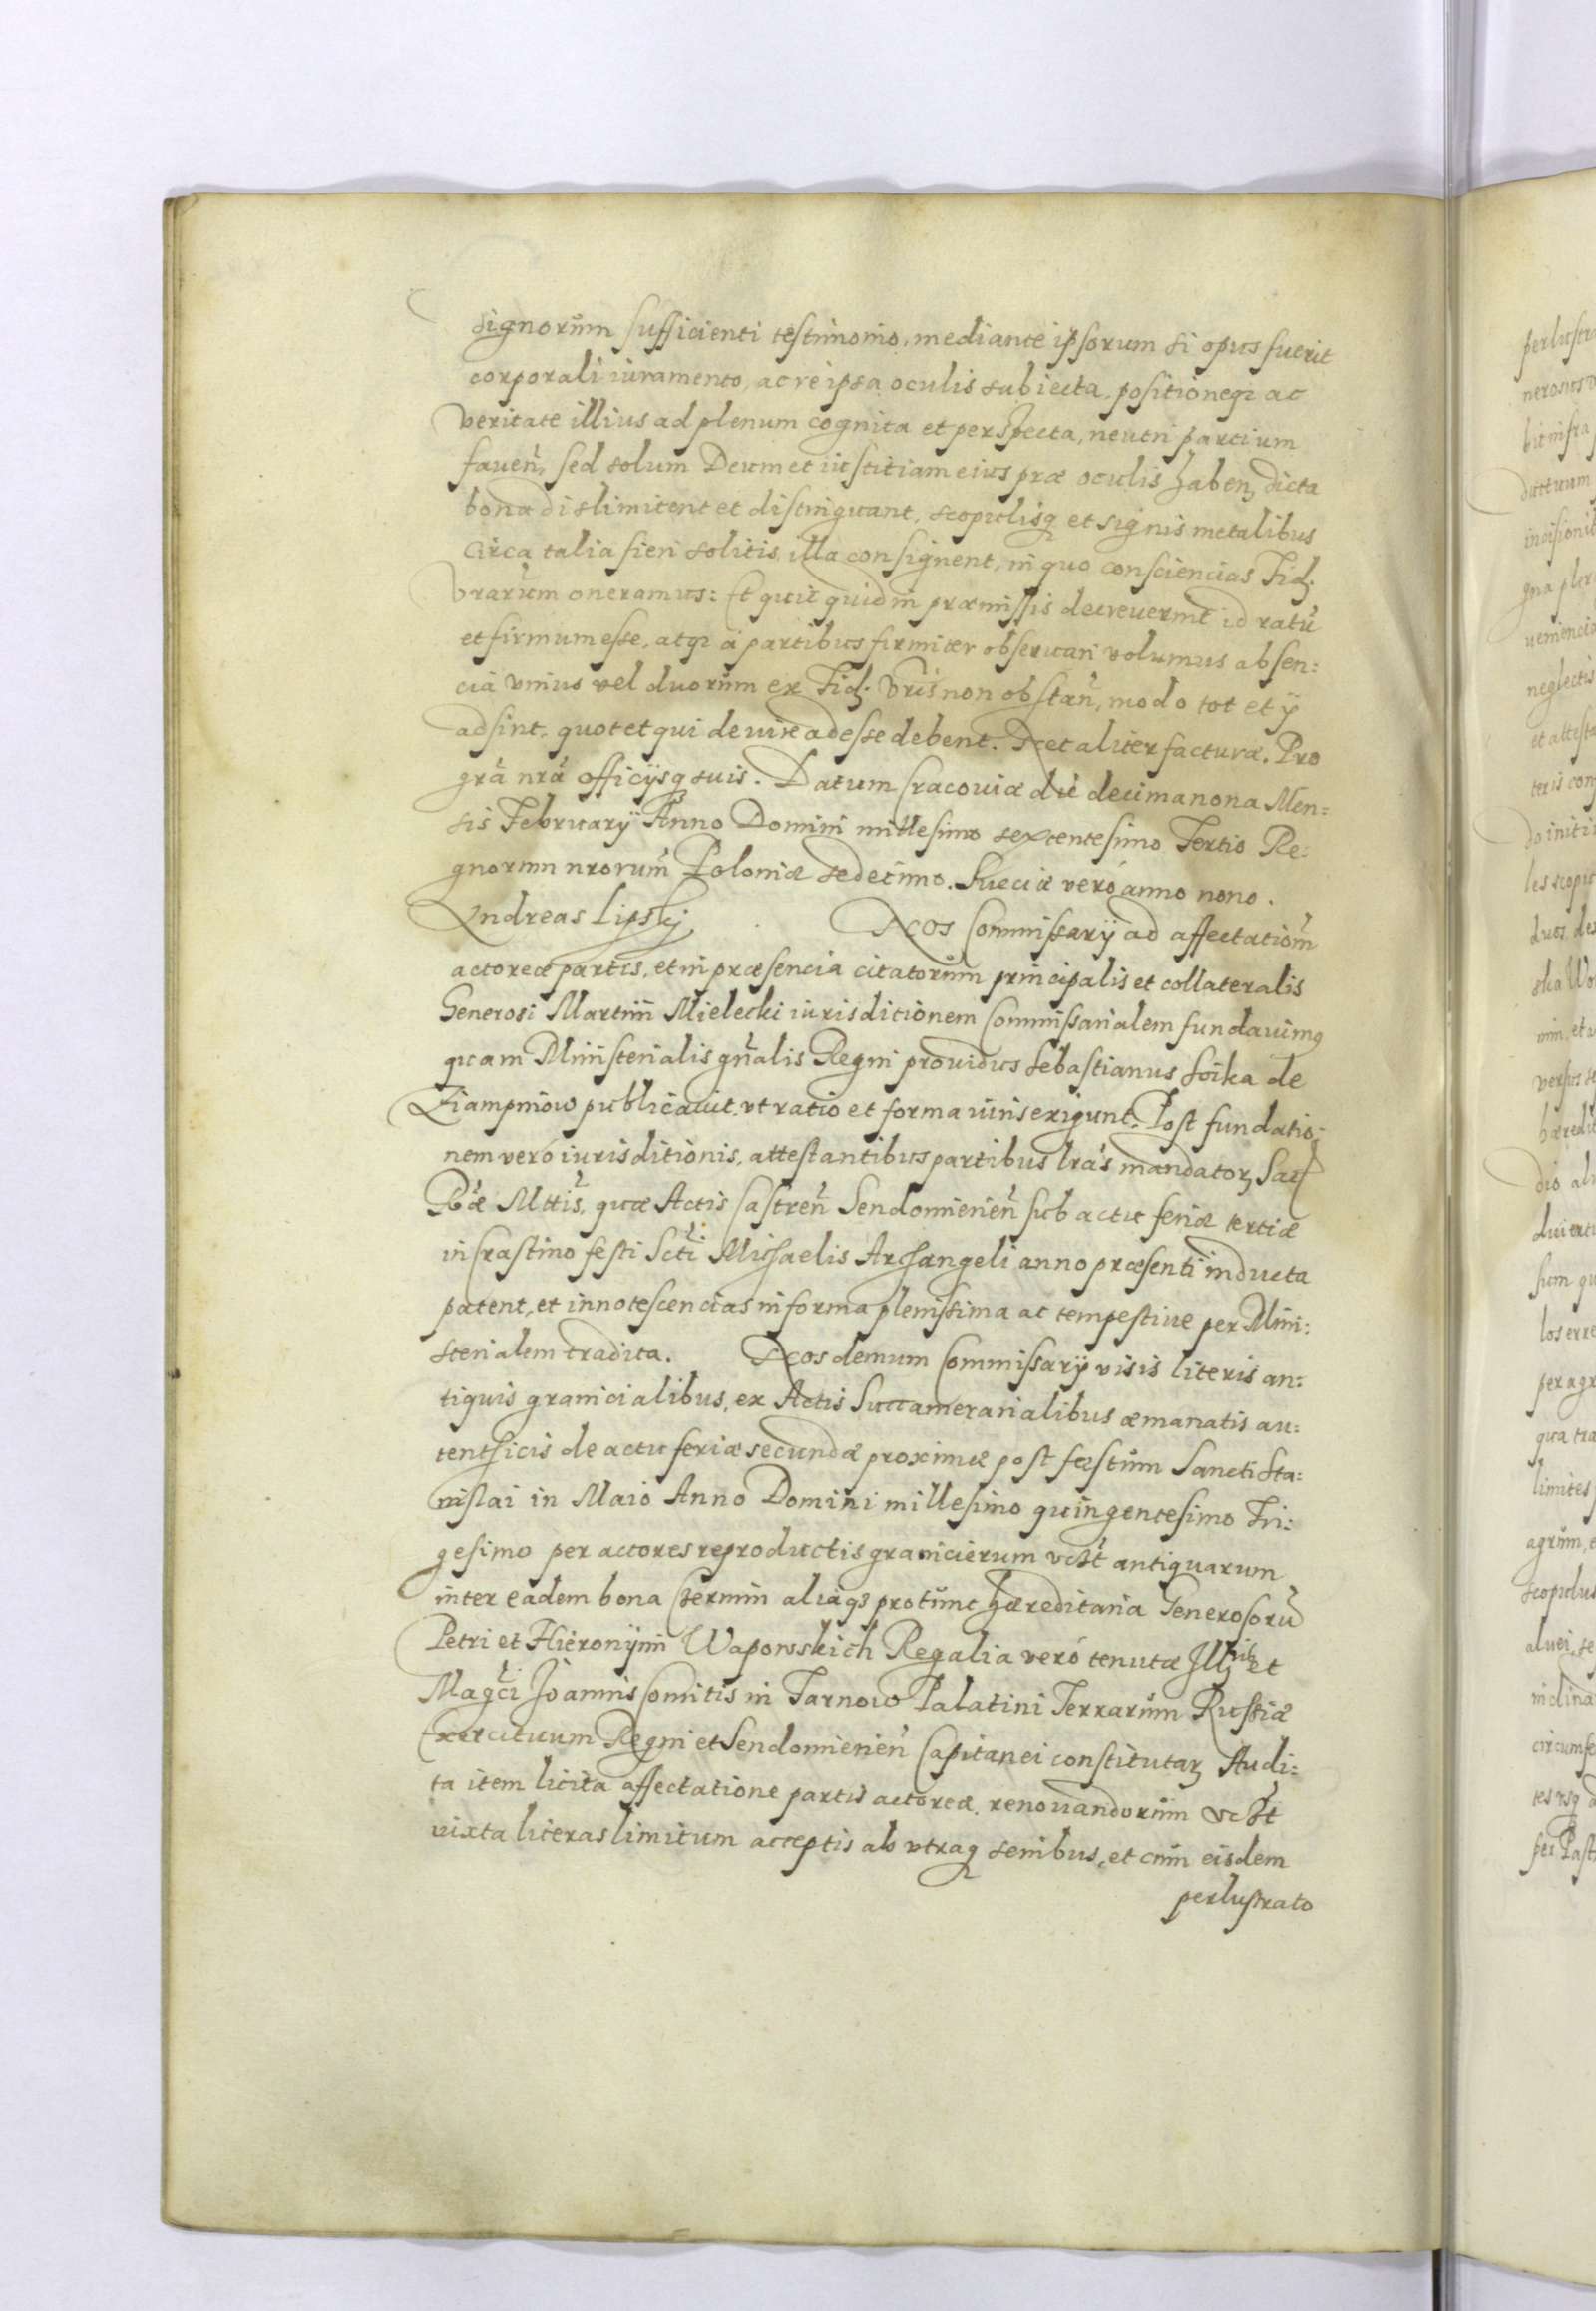 signorum sufficienti testimonio, mediante ipsorum si opus fuerit
corporali iuramento, ac re ipsa oculis subiecta, positioneqz ac
veritate illius ad plenum cognita et perspecta, neutri partium
faueñ, sed solum Deum et iustitiam eius præ oculis habeñ, dicta
bona dislimitent et distinguant, scopulisqz et signis metalibus
circa talia fieri solitis, illa consignent, in quo consciencias Fid.
Vrarum oneramus: Et quicquid in præmissis decreuerint id ratũ
et firmum esse, atqz à partibus firmiter obseruari volumus absen:
cia vnius vel duorum ex Fid. Vris non obstañ, modo tot et ÿ
adsint, quot et qui de iure adesse debent. Nec aliter facturæ. Pro
grã nrã officÿsqz suis. Datum Cracouiæ die decimanona Men:
sis Februarÿ Anno Domini millesimo sexcentesimo Tertio Re:
gnorum nrorum Poloniæ sedecimo. Sueciæ veró anno nono.
Andreas Lipskj. Nos Commissarÿ ad affectationẽ
actoreæ partis, et in præsencia citatorum principalis et collateralis
Generosi Martini Mielecki iurisditionem Commissarialem fundauimq
quam Ministerialis gñalis Regni prouidus Sebastianus Soika de
Ziampniow publicauit, vt ratio et forma iuris exigunt. Post fundatio:
nem veró iurisditionis, attestantibus partibus lrãs mandatorz Sac
Rae Mttis, quæ Actis Castreñ Sendomirieñ sub actu feriæ tertiæ
in Crastino festi Scti Michaelis Archangeli anno præsenti inducta
patent, et innotescencias in forma plenissima ac tempestiue per Mini:
sterialem tradita. Nos demum Commissarÿ visis literis an:
tiquis granicialibus, ex Actis Succamerarialibus æmanatis au:
tenthicis de actu feriæ secundæ proximæ post festum Sancti Sta:
nislai in Maio Anno Domini millesimo quingentesimo Tri:
gesimo per actores reproductis granicierum vcßt antiquarum
inter eadem bona Czermin aliaqz protunc hæreditaria Generosorũ
Petri et Hieronÿmi Waporsskich Regalia veró tenutæ Illris et
Magci Joannis Comitis in Tarnow Palatini Terrarum Russiæ
Exercituum Regni et Sendomirieñ Capitanei constitutarz Audi:
ta item licita affectatione partis actoreæ, renouandorum vcßt
iuxta literas limitum acceptis ab vtraqz senibus, et cum eisdem
perlustrato